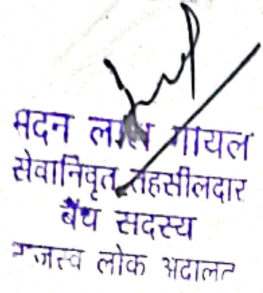 मदन लाल गोयल
सेवानिवृत तहसीलदार
बैंच सदस्य
राजस्व लोक अदालत